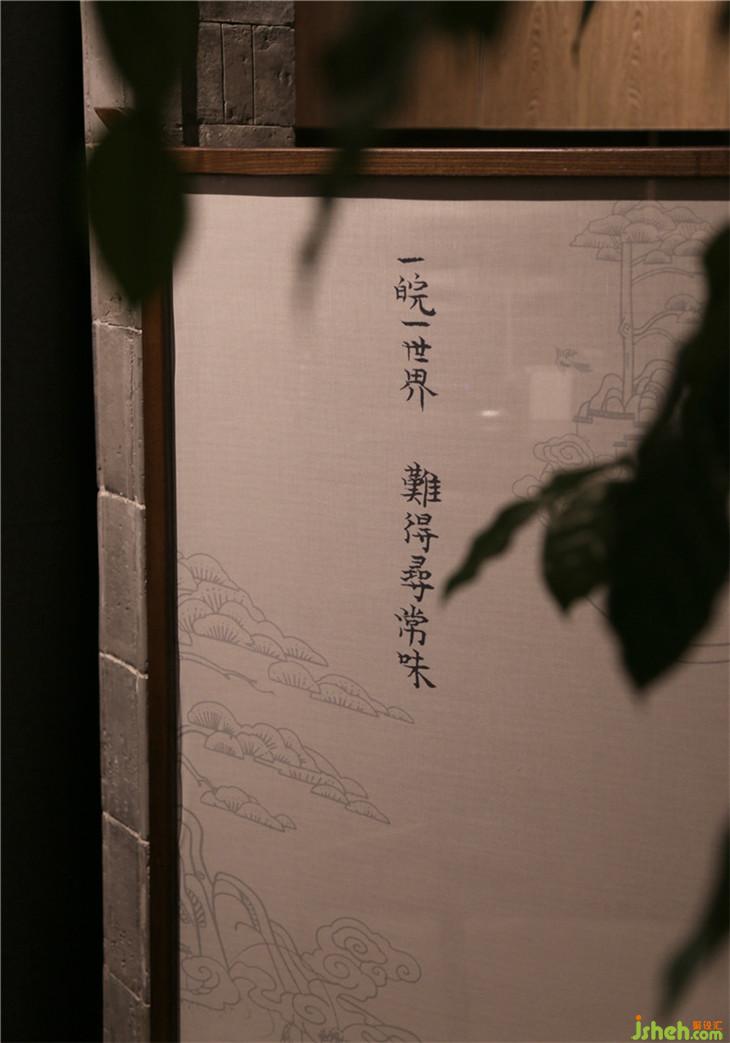 一皖一世界 難得尋常味
聚设汇
jsheh.com